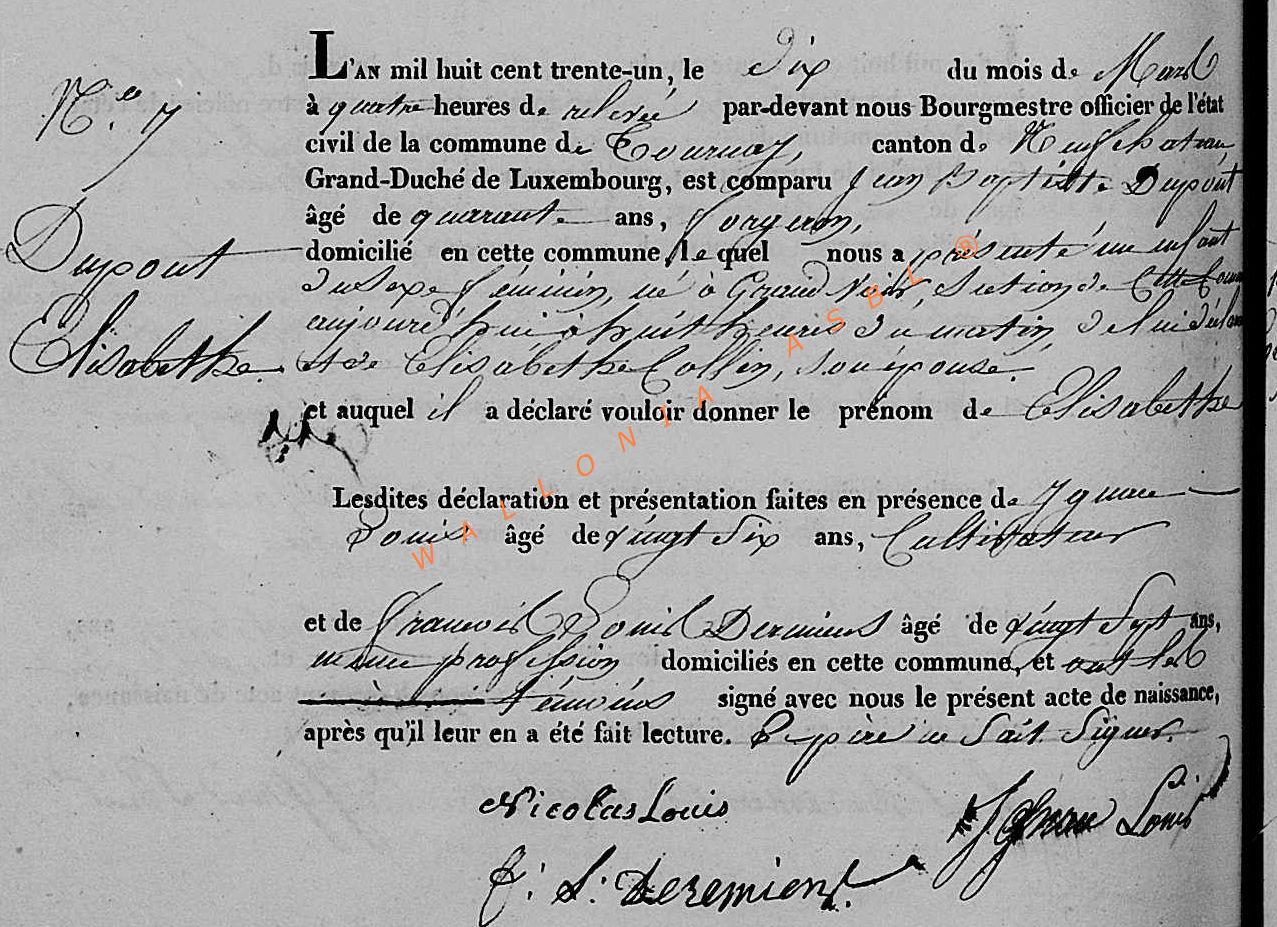 N.º 7
Dupont
Elisabethe.
L'AN mil huit cent trente-un, le dix du mois de Mars
à quatre heures de relevée par-devant nous Bourgmestre officier de l'état
civil de la commune de Tournay, canton de Neufchateau,
Grand-Duché de Luxembourg, est comparu Jean Baptiste Dupont
âgé de quarante ans, forgeron,
domicilié en cette commune, le quel nous a présenté un enfant
du sexe féminin, né à Grand Voir, Section de cette Comm
aujourd'hui à huit heures du matin, de lui déclarant
et de Elisabethe Collin, son épouse.
et auquel il a déclaré vouloir donner le prénom de Elisabethe
Lesdites déclaration et présentation faites en présence de Ignace
Louis âgé de vingt six ans, Cultivateur
et de François Louis Deremiens âgé de vingt sept ans,
même profession domiciliés en cette commune, et ont les
témoins signé avec nous le présent acte de naissance,
après qu'il leur en a été fait lecture. Le père ne sait signer.
Nicolas Louis
Ignace Louis
F. L. Deremiens.
WALLONIA ASBL ®